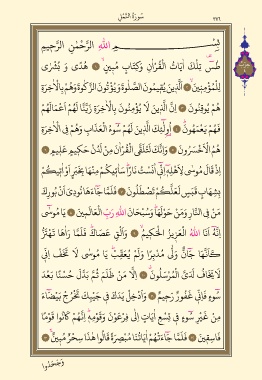 سُورَةُ النَّمْلِ ٣٧٦
بِسْمِ اللهِ الرَّحْمٰنِ الرَّحٖيمِ
طٰسٓ تِلْكَ اٰيَاتُ الْقُرْاٰنِ وَكِتَابٍ مُبٖينٍ هُدًى وَ بُشْرٰى
لِلْمُؤْمِنٖينَ اَلَّذٖينَ يُقٖيمُونَ الصَّلٰوةَ وَيُؤْتُونَ الزَّكٰوةَ وَهُمْ بِالْاٰخِرَةِ
هُمْ يُوقِنُونَ اِنَّ الَّذٖينَ لَا يُؤْمِنُونَ بِالْاٰخِرَةِ زَيَّنَّا لَهُمْ اَعْمَالَهُمْ
فَهُمْ يَعْمَهُونَ اُولٰٓئِكَ الَّذٖينَ لَهُمْ سُٓوءُ الْعَذَابِ وَهُمْ فِي الْاٰخِرَةِ
هُمُ الْاَخْسَرُونَ وَاِنَّكَ لَتُلَقَّى الْقُرْاٰنَ مِنْ لَدُنْ حَكٖيمٍ عَلٖيمٍ
اِذْ قَالَ مُوسٰى لِاَهْلِهٖٓ اِنّٖٓي اٰنَسْتُ نَارًا سَاٰتٖيكُمْ مِنْهَا بِخَبَرٍ اَوْ اٰتٖيكُمْ
بِشِهَابٍ قَبَسٍ لَعَلَّكُمْ تَصْطَلُونَ فَلَمَّا جَٓاءَهَا نُودِيَ اَنْ بُورِكَ
مَنْ فِي النَّارِ وَمَنْ حَوْلَهَا وَسُبْحَانَ اللهِ رَبِّ الْعَالَمٖينَ يَا مُوسٰٓى
اِنَّهُٓ اَنَا اللهُ الْعَزٖيزُ الْحَكٖيمُ وَاَلْقِ عَصَاكَ فَلَمَّا رَاٰهَا تَهْتَزُّ
كَاَنَّهَا جَٓانٌّ وَلّٰى مُدْبِرًا وَلَمْ يُعَقِّبْ يَا مُوسٰى لَا تَخَفْ اِنّٖي
لَا يَخَافُ لَدَيَّ الْمُرْسَلُونَ اِلَّا مَنْ ظَلَمَ ثُمَّ بَدَّلَ حُسْنًا بَعْدَ
سُٓوءٍ فَاِنّٖي غَفُورٌ رَحٖيمٌ وَاَدْخِلْ يَدَكَ فٖي جَيْبِكَ تَخْرُجْ بَيْضَٓاءَ
مِنْ غَيْرِ سُٓوءٍ فٖي تِسْعِ اٰيَاتٍ اِلٰى فِرْعَوْنَ وَقَوْمِهٖ اِنَّهُمْ كَانُوا قَوْمًا
فَاسِقٖينَ فَلَمَّا جَٓاءَتْهُمْ اٰيَاتُنَا مُبْصِرَةً قَالُوا هٰذَا سِحْرٌ مُبٖينٌ
وَجَحَدُوا